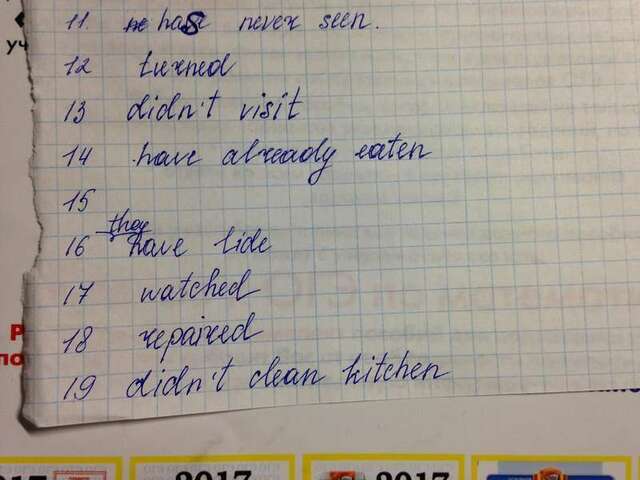 11. he has never seen.
12 turned
13 didn't visit
14 have already eaten
15
16 they have tide
17 watched
18 repaired
19 didn't clean kitchen
2017
2017